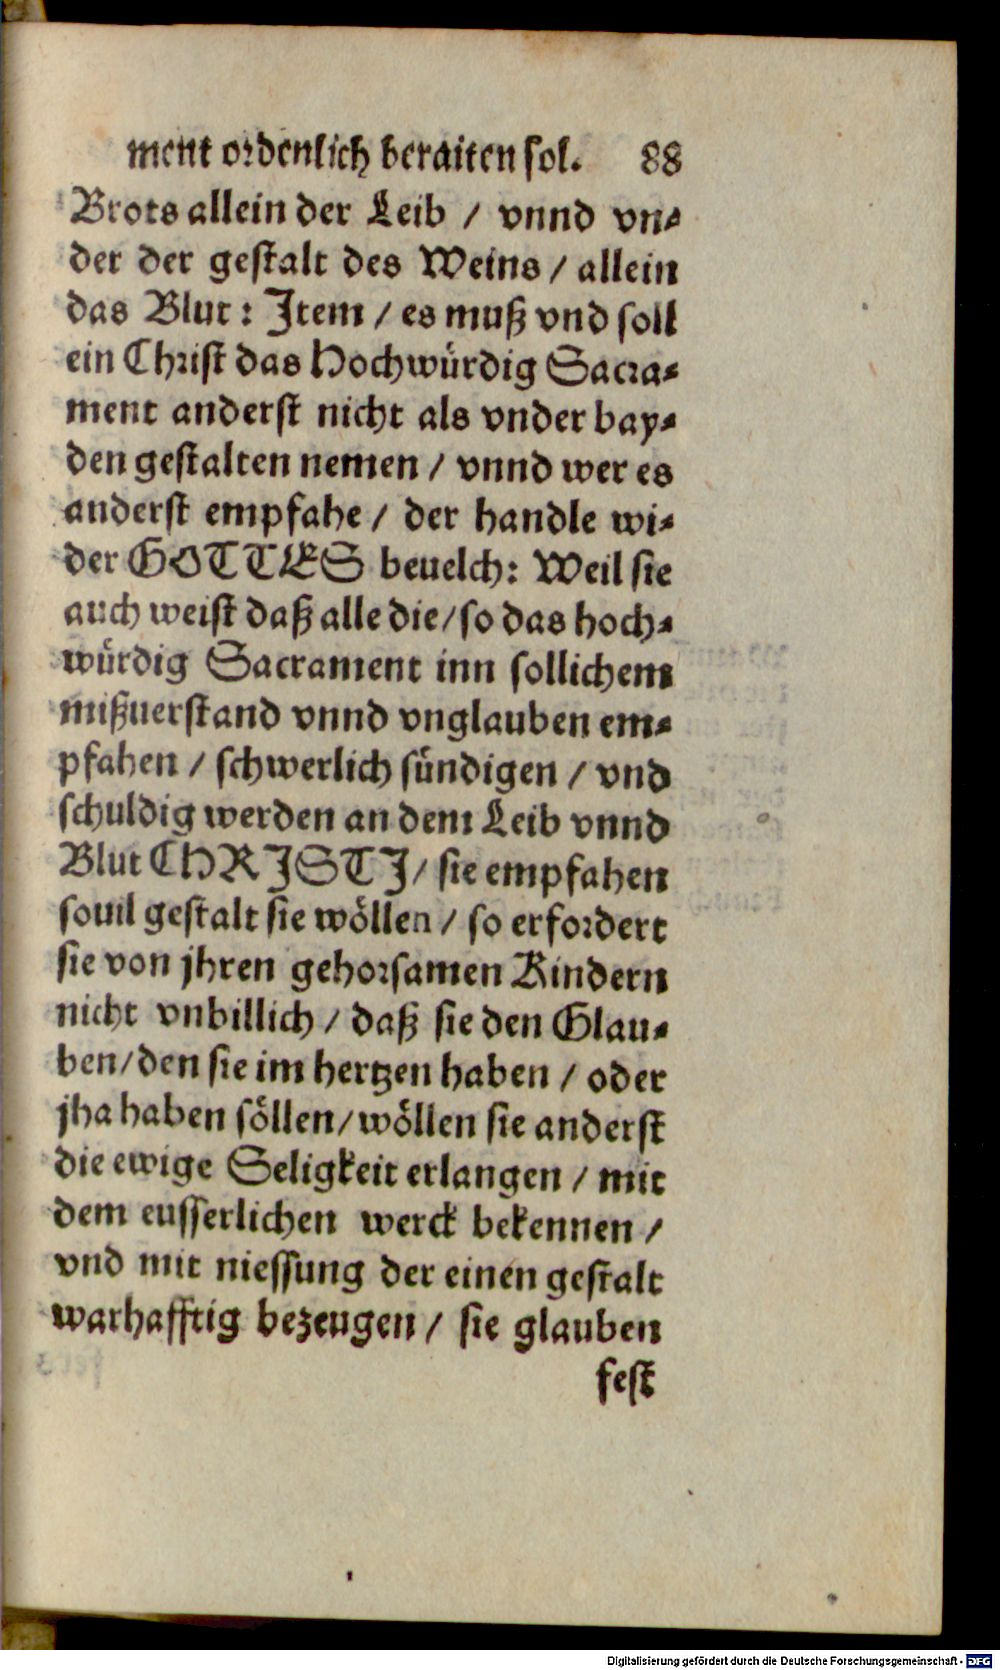 ment ordenlich beraiten sol. 88
Brots allein der Leib / vnnd vn-
der der gestalt des Weins / allein
das Blut: Item / es muß vnd soll
ein Christ das Hochwürdig Sacra-
ment anderst nicht als vnder bay-
den gestalten nemen / vnnd wer es
anderst empfahe / der handle wi-
der GOTTES beuelch: Weil sie
auch weist daß alle die / so das hoch-
würdig Sacrament inn sollichem
mißuerstand vnnd vnglauben em-
pfahen / schwerlich sündigen / vnd
schuldig werden an dem Leib vnnd
Blut CHRISTI / sie empfahen
souil gestalt sie wöllen / so erfordert
sie von jhren gehorsamen Kindern
nicht vnbillich / daß sie den Glau-
ben / den sie im hertzen haben / oder
jha haben söllen / wöllen sie anderst
die ewige Seligkeit erlangen / mit
dem eusserlichen werck bekennen /
vnd mit niessung der einen gestalt
warhafftig bezeugen / sie glauben
fest
Digitalisierung gefördert durch die Deutsche Forschungsgemeinschaft - DFG